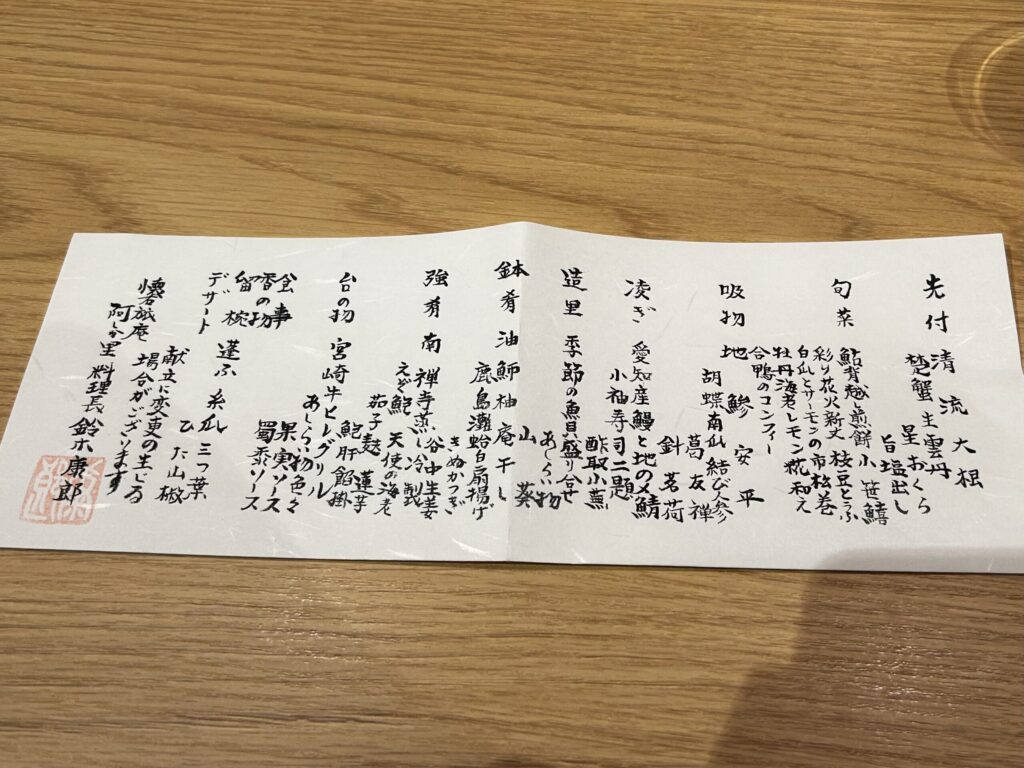 先付 清流大根
楚蟹 生雲丹
星おくら
旨塩出し
旬菜 鮎背越 煎餅 小笹鱚
彩り花火新丈 枝豆とうふ
白瓜とサーモンの市松巻
牡丹海老レモン糀和え
合鴨のコンフィー
吸物 地鱧 安平
胡蝶南瓜 結び人参
葛友禅
針茗荷
凌ぎ 愛知産鰻と地〆鯖
小袖寿司二題
酢取小蕪
造里 季節の魚貝盛り合せ
あしらい物
山葵
鉢肴 油鰤柚庵干し
鹿島灘蛤白扇揚げ
きぬかつぎ
谷中生姜
強肴 南禅寺蒸し冷製
えぞ鮑 天使の海老
茄子麺 蓮芋
鮑肝餡掛
台の物 宮崎牛ヒレグリル
あしらい物色々
果実ソース
蜀黍ソース
食事
香の物
留椀 蓬ふ 糸瓜 三つ葉
ひた山椒
デザート
献立に変更の生じる
場合がございます
懐石戯庵
阿しか里 料理長 鈴木康郎